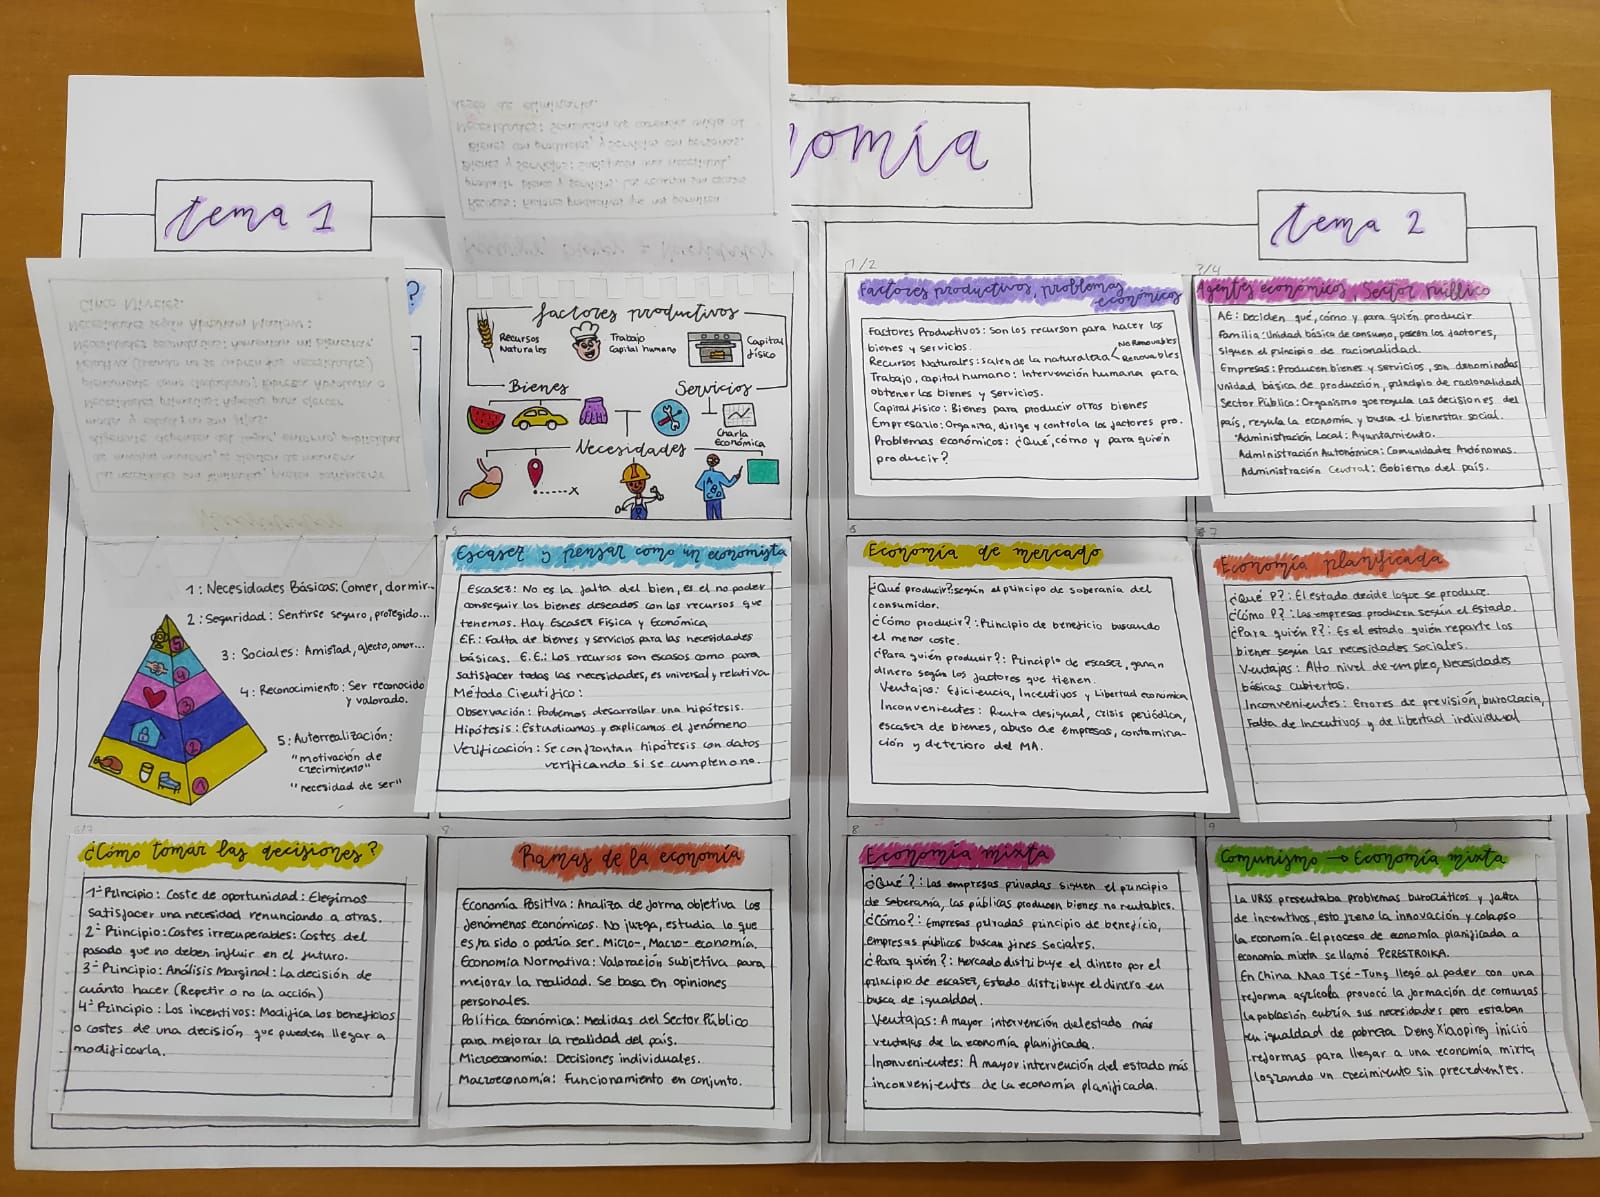 omía
tema 1
tema 2
?
factores productivos
Recursos
Naturales
Trabajo
Capital humano
Capital
físico
Bienes
Servicios
Charla
Económica
Necesidades
A B C
1: Necesidades Básicas: Comer, dormir...
2: Seguridad: Sentirse seguro, protegido...
3: Sociales: Amistad, afecto, amor...
4: Reconocimiento: Ser reconocido
y valorado.
5: Autorrealización:
"motivación de
crecimiento"
"necesidad de ser"
5
4
3
2
1
Escasez y pensar como un economista
Escasez: No es la falta del bien, es el no poder
conseguir los bienes deseados con los recursos que
tenemos. Hay Escasez Física y Económica
E.F.: Falta de bienes y servicios para las necesidades
básicas. E.E.: Los recursos son escasos como para
satisfacer todas las necesidades, es universal y relativa
Método Científico:
Observación: Podemos desarrollar una hipótesis.
Hipótesis: Estudiamos y explicamos el fenómeno
Verificación: Se confrontan hipótesis con datos
verificando si se cumplen o no.
¿Cómo tomar las decisiones?
1º Principio: Coste de oportunidad: Elegimos
satisfacer una necesidad renunciando a otras.
2º Principio: Costes irrecuperables: Costes del
pasado que no deben influir en el futuro.
3º Principio: Análisis Marginal: La decisión de
cuánto hacer (Repetir o no la acción)
4º Principio: Los incentivos: Modifica los beneficios
o costes de una decisión que pueden llegar a
modificarla.
9
Ramas de la economía
Economía Positiva: Analiza de forma objetiva los
fenómenos económicos. No juzga, estudia lo que
es, ha sido o podría ser. Micro-, Macro-economía.
Economía Normativa: Valoración Subjetiva para
mejorar la realidad. Se basa en opiniones
personales.
Política Económica: Medidas del Sector Público
para mejorar la realidad del país.
Microeconomía: Decisiones individuales.
Macroeconomía: Funcionamiento en conjunto.
1/2
Factores productivos, problemas
económicos
Factores Productivos: Son los recursos para hacer los
bienes y servicios.
Recursos Naturales: Salen de la naturaleza < No Renovables
Renovables
Trabajo, capital humano: Intervención humana para
obtener los bienes y servicios.
Capital físico: Bienes para producir otros bienes
Empresario: Organiza, dirige y controla los factores pro.
Problemas económicos: ¿Qué, cómo y para quién
producir?
3/4
Agentes económicos, Sector Público
AE: Deciden qué, cómo y para quién producir.
Familia: Unidad básica de consumo, poseen los factores,
siguen el principio de racionalidad.
Empresas: Producen bienes y servicios, son denominadas
unidad básica de producción, principio de racionalidad
Sector Público: Organismo que regula las decisiones del
país, regula la economía y busca el bienestar social.
Administración Local: Ayuntamiento.
Administración Autonómica: Comunidades Autónomas.
Administración Central: Gobierno del país.
Economía de mercado
¿Qué producir?: según el principo de soberanía del
consumidor.
¿Cómo producir?: Principio de beneficio buscando
el menor coste.
¿Para quién producir?: Principio de escasez, ganan
dinero según los factores que tienen.
Ventajas: Eficiencia, Incentivos y Libertad económica
Inconvenientes: Renta desigual, crisis periódica,
escasez de bienes, abuso de empresas, contamina-
ción y deterioro del MA.
7
Economía planificada
¿Qué P?: El estado decide lo que se produce.
¿Cómo P?: Las empresas producen según el Estado.
¿Para quién P?: Es el estado quién reparte los
bienes según las necesidades sociales.
Ventajas: Alto nivel de empleo, Necesidades
básicas cubiertas.
Inconvenientes: Errores de previsión, burocracia,
Falta de Incentivos y de libertad individual
8
Economía mixta
¿Qué?: Las empresas privadas siguen el principio
de soberanía, las públicas producen bienes no rentables.
¿Cómo?: Empresas privadas principio de beneficio,
empresas públicos buscan fines sociales.
¿Para quién?: Mercado distribuye el dinero por el
principio de escasez, Estado distribuye el dinero en
busca de igualdad.
Ventajas: A mayor intervención del estado más
ventajas de la economía planificada.
Inconvenientes: A mayor intervención del estado más
inconvenientes de la economía planificada.
9
Comunismo → Economía mixta
La URSS presentaba problemas burocráticos y falta
de incentivos, esto freno la innovación y colapso
la economía. El proceso de economía planificada a
economía mixta se llamó PERESTROIKA.
En China Mao Tsé-Tung llegó al poder con una
reforma agrícola provocó la formación de comunas
la población cubría sus necesidades pero estaban
en igualdad de pobreza. Deng Xiaoping inició
reformas para llegar a una economía mixta
logrando un crecimiento sin precedentes.